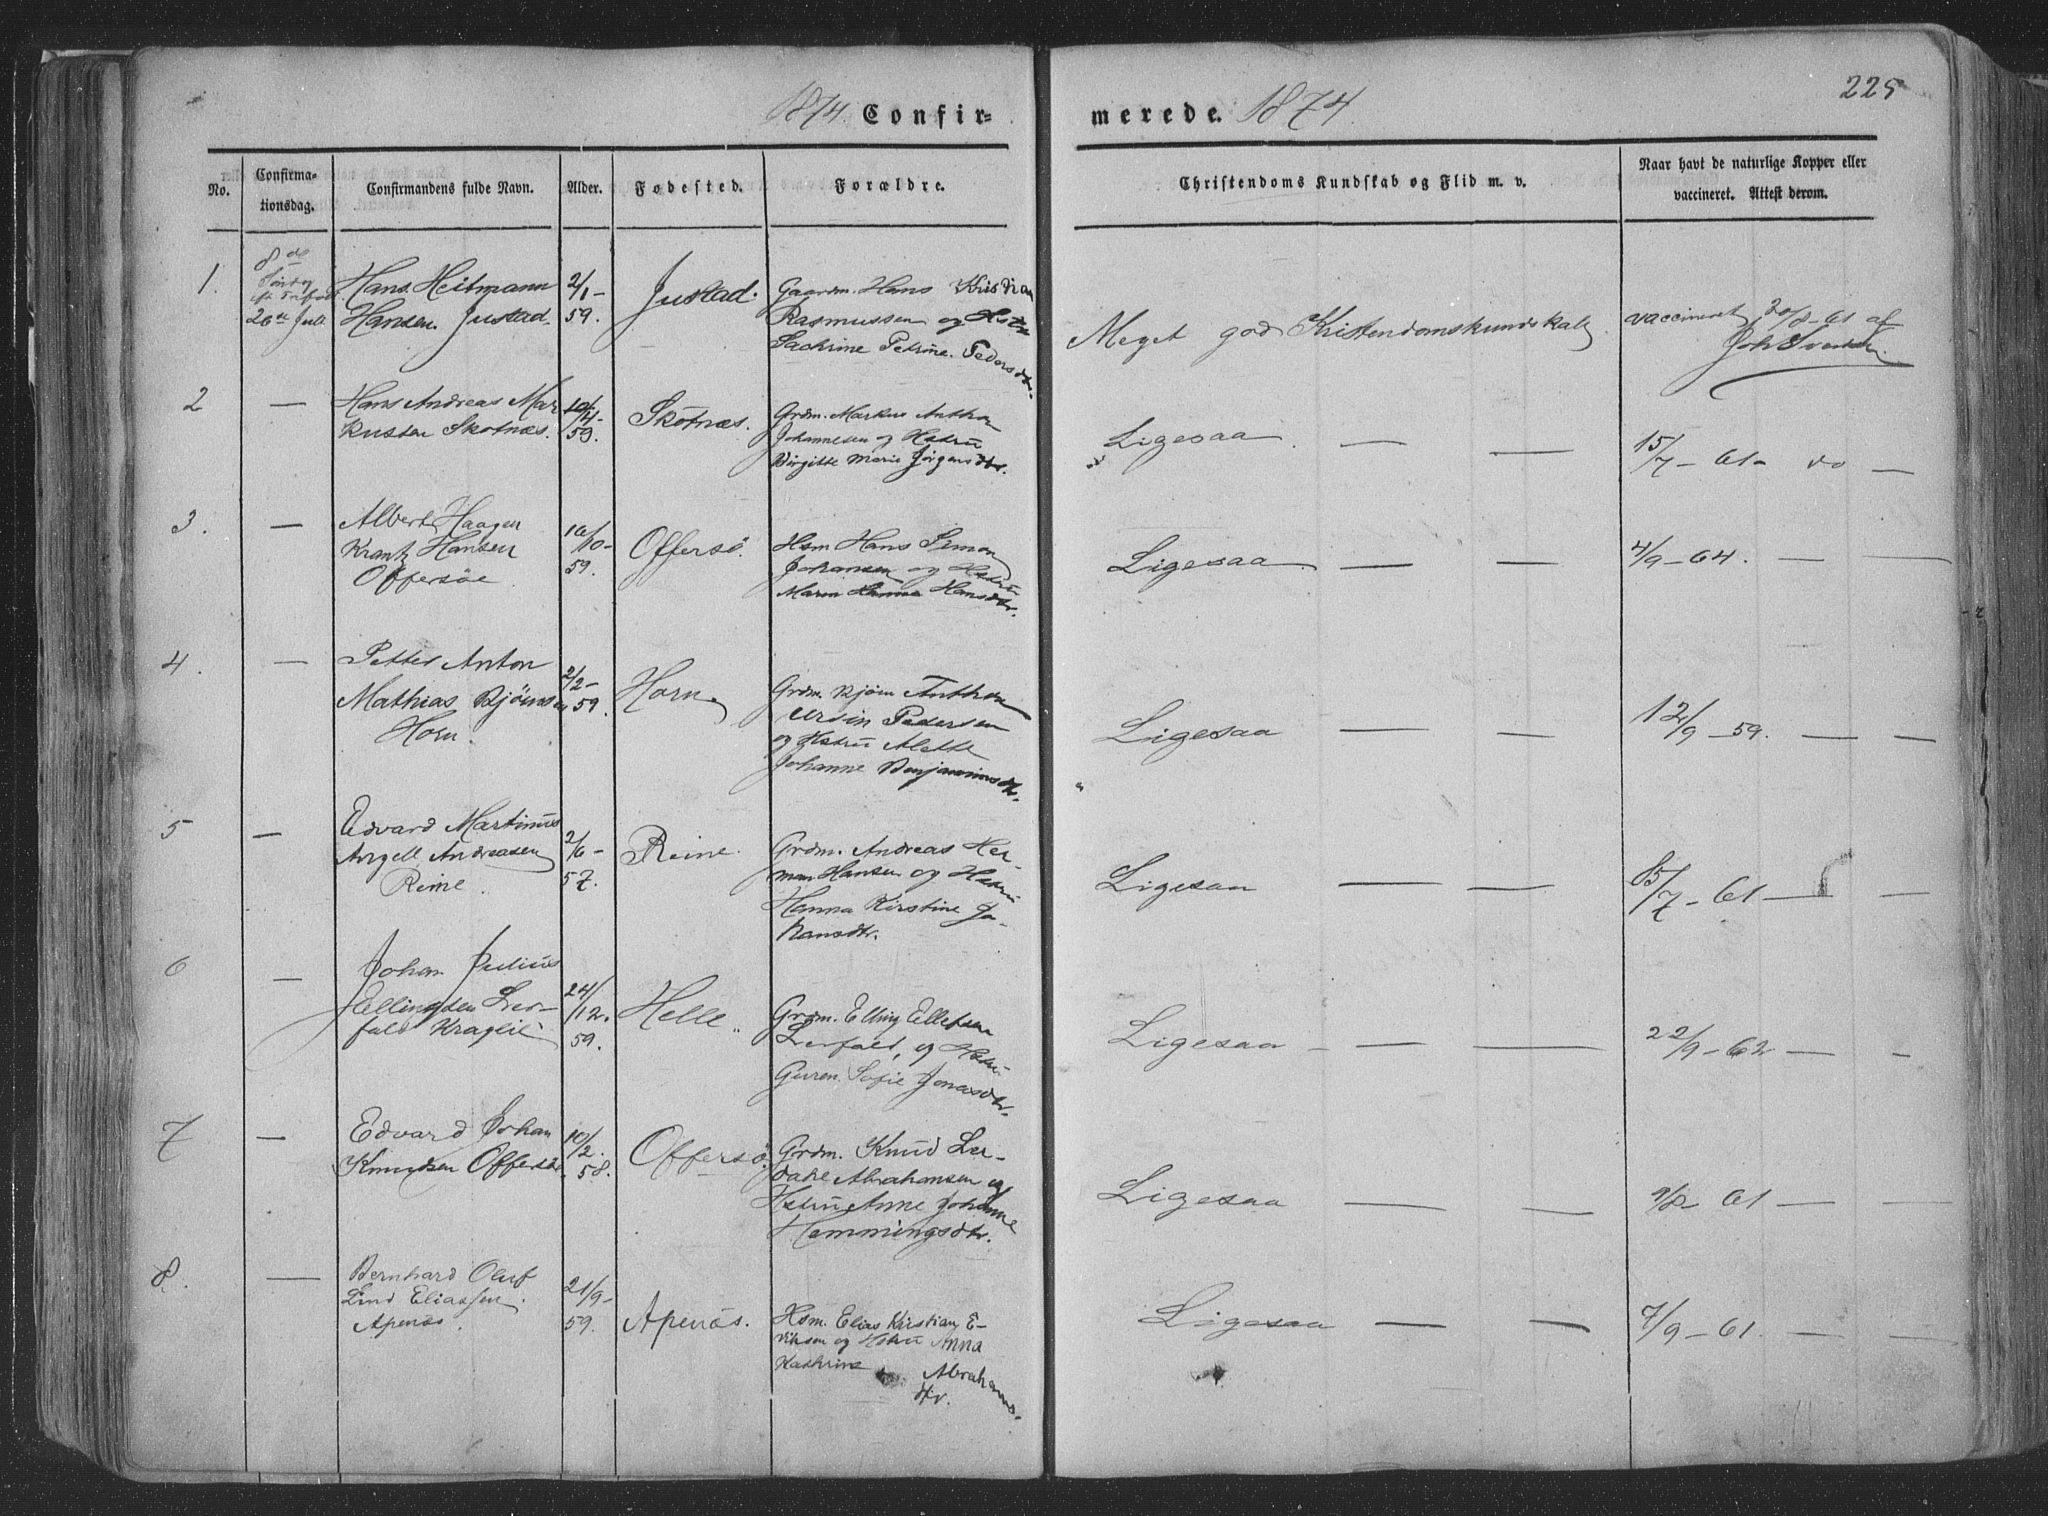 1874. Confir=
merede. 1874.
225
No.
Confirma-
tionsdag.
Confirmandens fulde Navn.
Alder.
Fødested.
Forældre.
Christendoms Kundskab og Flid m. v.
Naar havt de naturlige Kopper eller
vaccineret. Attest derom.
1.
8de
26de Juli
Hans Heitmann
Hansen Justad.
2/1-
59.
Justad.
Gaardm. Hans Kristian
Rasmussen og Hstru
Petrine Pedersdtr.
Meget god Kristendomskundskab
vaccineret 20/8-61 af
Joh Iversen.
2
—
Hans Andreas Mar
kusen Skotnæs.
59.
Skotnæs.
Grdm. Markus Anthon
Johannesen og Hstru
Birgitte Marie Jørgensdtr.
Ligesaa — —
15/7-61- do —
3.
—
Albert Haagen
Krantz Hansen
Offersøe
16/10-
59.
Offersö.
Hsm Hans Simon
Johansen og Hstru
Maren Hanna Hansdtr.
Ligesaa — —
4/9-64. — —
4.
—
Petter Anton
Mathias Bjørnsen
Horn.
2/2-
59.
Horn
Grdm. Bjørn Anthon
Ursin Pedersen
og Hstru Alette
Johanne Benjaminsdtr.
Ligesaa — —
12/9-59. — —
5
—
Edvard Martinus
Angell Andreasen
Reine.
2/6-
57.
Reine.
Grdm. Andreas Her-
man Hansen og Hstru
Hanna Kirstine Jo-
hansdtr.
Ligesaa — —
15/7-61 — —
6
—
Johan Julius
Ellingsen Ler-
fald
24/12.
59.
Helle
Grdm. Elling Ellefsen
Lerfald, og Hstru
Guren Sofie Jonasdtr.
Ligesaa — —
22/9-62 — —
7
—
Edvard Johan
Knudsen Offersö.
10/2.
58.
Offersö.
Grdm. Knud Ler-
dahl Abrahamsen og
Hstru Anne Johanne
Hemmingsdtr.
Ligesaa — —
9/8-61 — —
8.
—
Bernhard Oluf
Lind Eliassen
Apenæs.
21/9-
59.
Apenæs.
Hsm. Elias Kirstian E-
riksen og Hstru Anna
Kathrine Abrahams-
dtr.
Ligesaa — —
7/9-61. — —